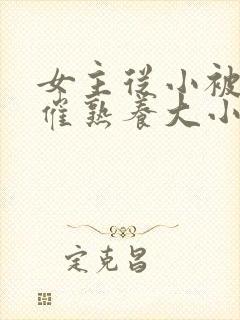 女主从小被
催熟养大小
定克昌